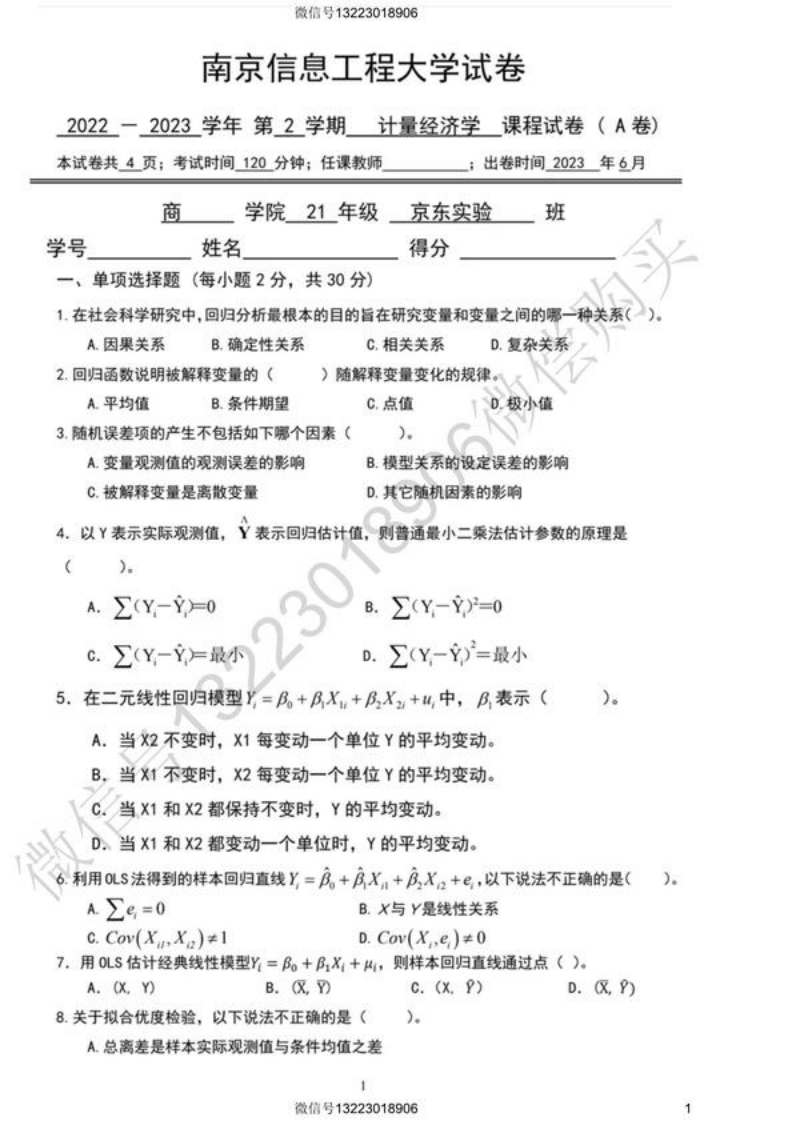 微信号13223018906
南京信息工程大学试卷
2022 － 2023 学年 第 2 学期 计量经济学 课程试卷 ( A 卷)
本试卷共 4 页；考试时间 120 分钟；任课教师________；出卷时间 2023 年 6 月
商 学院 21 年级 京东实验 班
学号________ 姓名____________ 得分 ____________
一、单项选择题 (每小题 2 分，共 30 分)
1.在社会科学研究中,回归分析最根本的目的旨在研究变量和变量之间的哪一种关系( )。
A.因果关系 B.确定性关系 C.相关关系 D.复杂关系
2.回归函数说明被解释变量的（ ）随解释变量变化的规律。
A.平均值 B.条件期望 C.点值 D.极小值
3.随机误差项的产生不包括如下哪个因素（ ）。
A.变量观测值的观测误差的影响 B.模型关系的设定误差的影响
C.被解释变量是离散变量 D.其它随机因素的影响
4．以 Y 表示实际观测值，Ŷ 表示回归估计值，则普通最小二乘法估计参数的原理是
（ ）。
A．∑(Yᵢ－Ŷᵢ)=0 B．∑(Yᵢ－Ŷᵢ)²=0
C．∑(Yᵢ－Ŷᵢ)=最小 D．∑(Yᵢ－Ŷᵢ)²=最小
5．在二元线性回归模型 Yᵢ = β₀ + β₁X₁ᵢ + β₂X₂ᵢ + uᵢ 中，β₁ 表示（ ）。
A．当 X2 不变时，X1 每变动一个单位 Y 的平均变动。
B．当 X1 不变时，X2 每变动一个单位 Y 的平均变动。
C．当 X1 和 X2 都保持不变时，Y 的平均变动。
D．当 X1 和 X2 都变动一个单位时，Y 的平均变动。
6.利用 OLS 法得到的样本回归直线 Yᵢ = β̂₀ + β̂₁Xᵢ₁ + β̂₂Xᵢ₂ + eᵢ ,以下说法不正确的是( )。
A. ∑eᵢ = 0 B. X 与 Y 是线性关系
C. Cov(Xᵢ₁, Xᵢ₂) ≠ 1 D. Cov(Xᵢ, eᵢ) ≠ 0
7．用 OLS 估计经典线性模型 Yᵢ = β₀ + β₁Xᵢ + μᵢ，则样本回归直线通过点（ ）。
A．(X, Y) B．(X̅, Y̅) C．(X, Ŷ) D．(X̅, Ŷ)
8.关于拟合优度检验，以下说法不正确的是（ ）。
A.总离差是样本实际观测值与条件均值之差
1
微信号13223018906
1
微信号13223018906微偿购买